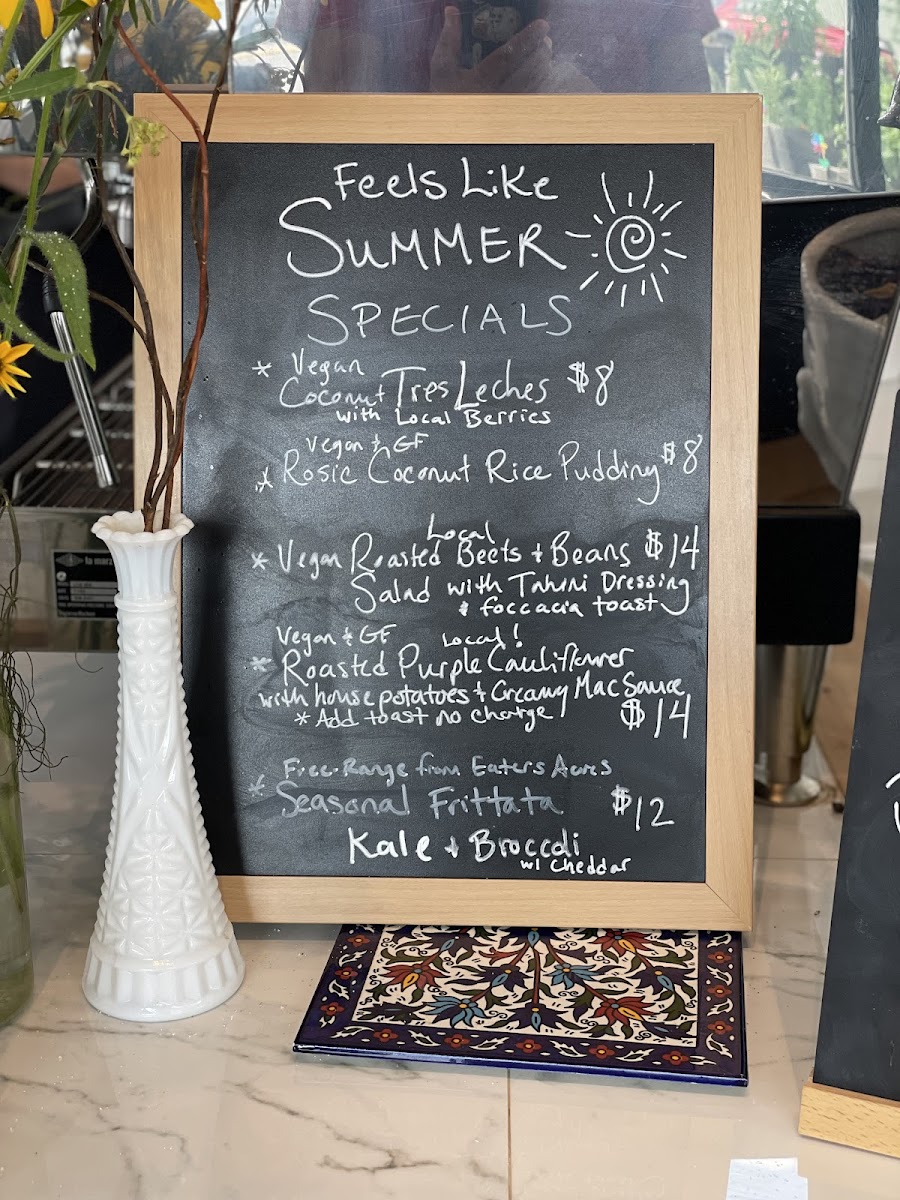 Feels Like
SUMMER
SPECIALS
* Vegan
Coconut Tres Leches $8
with Local Berries
Vegan & GF
* Rosie Coconut Rice Pudding $8
Local
* Vegan Roasted Beets & Beans $14
Salad with Tahini Dressing
& foccacia toast
Vegan & GF Local!
* Roasted Purple Cauliflower
with house potatoes & Creamy Mac Sauce
* Add toast no charge $14
Free-Range from Eaters Acres
* Seasonal Frittata $12
Kale & Broccoli
w/ Cheddar
la marz